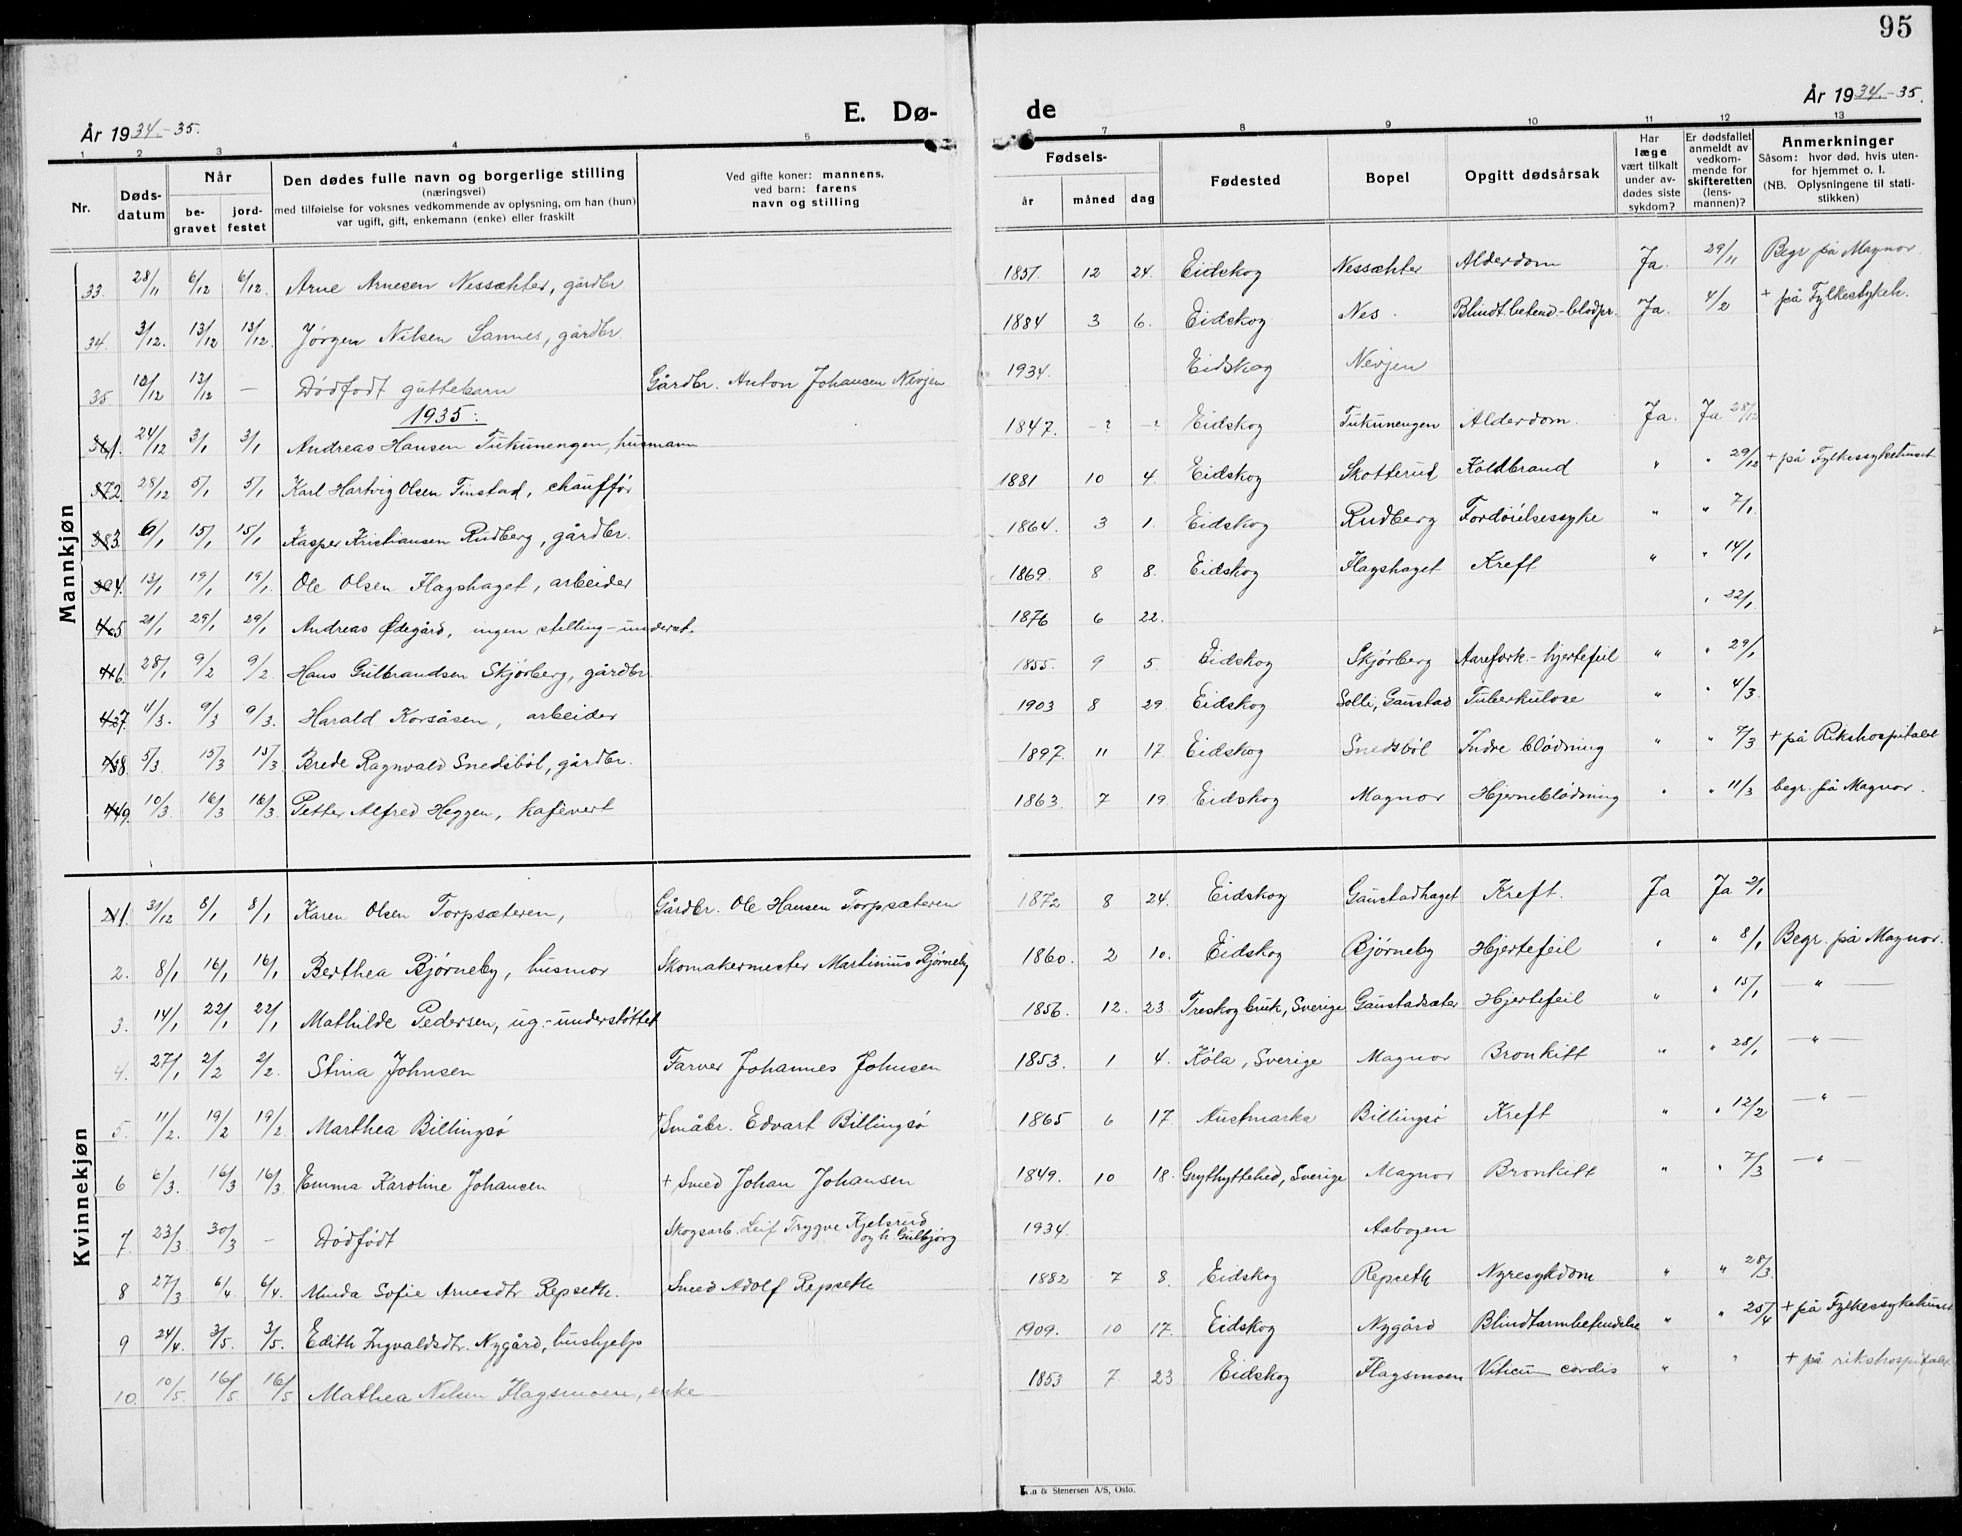 95
År 1934.-35.
E. Dø-
de
År 1934.-35.
1 2 3 4 5
7 8 9 10 11 12 13
Nr.
Døds-
datum
Når
be-
gravet
jord-
festet
Den dødes fulle navn og borgerlige stilling
(næringsvei)
med tilføielse for voksnes vedkommende av oplysning, om han (hun)
var ugift, gift, enkemann (enke) eller fraskilt
Ved gifte koner: mannens,
ved barn: farens
navn og stilling
Fødsels-
år måned dag
Fødested
Bopel
Opgitt dødsårsak
Har
læge
vært tilkalt
under av-
dødes siste
sykdom?
Er dødsfallet
anmeldt av
vedkom-
mende for
skifteretten
(lens-
mannen)?
Anmerkninger
Såsom: hvor død, hvis uten-
for hjemmet o. l.
(NB. Oplysningene til stati-
stikken)
Mannkjøn
33. 28/11 6/12 6/12. Arne Arnesen Nessæhter, gårdbr 1851. 12 24. Eidskog Nessæhter Alderdom Ja. 29/11 Begr på Magnor
34. 3/12. 13/12 13/12. Jørgen Nilsen Sannes, gårdbr. 1884 3 6. Eidskog Nes. Blindt.betend.-blodpr. Ja. 4/2 + på Fylkesykeh.
35 10/12 13/12 — Dödfödt guttebarn Gårdbr. Anton Johansen Nevjen 1934. Eidskog Nevjen
1935:
1. 24/12 3/1 3/1 Andreas Hansen Tukunengen, husmann 1847. -? -? Eidskog Tukunengen Alderdom. Ja. Ja 28/12
2. 28/12 5/1 5/1 Karl Hartvig Olsen Tinstad, chauffør 1881 10 4. Eidskog Skotterud Koldbrand " " 29/12 + på Fylkessykehuset
3. 6/1 15/1 15/1 Kasper Kristiansen Rudberg, gårdbr. 1864. 3 1. Eidskog Rudberg Fordöielsessyke " " 7/1.
4. 13/1 19/1 19/1. Ole Olsen Flagshaget, arbeider 1869. 8 8. Eidskog Flagshaget Kreft " " 14/1
5 21/1 29/1 29/1 Andreas Ødegård, ingen stilling - underst. 1876 6 22. " 22/1
6. 28/1 9/2 9/2. Hans Gulbrandsen Skjörberg, gårdbr. 1855. 9 5. Eidskog Skjörberg Aarefork.-hjertefeil " " 29/1
7. 4/3. 9/3 9/3. Harald Korsåsen, arbeider 1903 8 29. Eidskog Solli, Gaustad Tuberkulose " " 4/3.
8. 5/3. 15/3 15/3 Brede Ragnvald Snedsböl, gårdbr. 1897. 11 17. Eidskog Snedsböl Indre blödning " " 7/3 + på Rikshospitalet
9. 10/3. 16/3 16/3. Petter Alfred Heggen, kafévert 1863. 7 19 Eidskog Magnor Hjerneblödning " " 11/3 begr. på Magnor.
Kvinnekjøn
1 31/12 8/1 8/1 Karen Olsen Torpsæteren, Gårdbr. Ole Hansen Torpsæteren 1872 8 24. Eidskog Gaustadhaget Kreft. Ja Ja 2/1
2. 8/1 16/1 16/1. Berthea Bjørneby, husmor Skomakermester Martinius Bjørneby 1860. 2 10. Eidskog Bjørneby Hjertefeil " " 8/1 Begr. på Magnor.
3. 14/1 22/1 22/1 Mathilde Pedersen, ug.-understöttet 1856. 12. 23. Treskog bruk, Sverige Gaustadsæter Hjertefeil " " 15/1 — " —
4. 27/1 2/2 2/2. Stina Johnsen Farver Johannes Johnsen 1853. 1 4. Köla, Sverige Magnor Bronkitt " " 28/1 — " —
5. 11/2. 19/2 19/2. Marthea Billingsö +Småbr. Edvart Billingsö 1865 6 17 Austmarka Billingsö Kreft " " 12/2 — " —
6 6/3. 16/3 16/3. Emma Karoline Johansen + Smed Johan Johansen 1849. 10 18. Grythyttehed, Sverige Magnor Bronkitt " " 7/3 — " —
7. 23/3 30/3 - Dödfödt Skogsarb. Leif Trygve Kjelsrud og h. Gulbjörg 1934. Aabogen
8 27/3 6/4 6/4. Minda Sofie Arnesdtr Repseth. Smed Adolf Repseth 1882 7 8. Eidskog Repseth Nyresykdom " " 28/3.
9 24/4. 3/5. 3/5. Edith Ingvaldsdtr. Nygård, hushjelp 1909. 10 17. Eidskog Nygård Blindtarmbetendelse " " 25/4 + på Fylkessykehuset
10. 10/5. 16/5 16/5 Mathea Nilsen Flagsmoen, enke 1853 7 23 Eidskog Flagsmoen Viticum cordis " " + på rikshospitalet
& Stenersen A/S, Oslo.